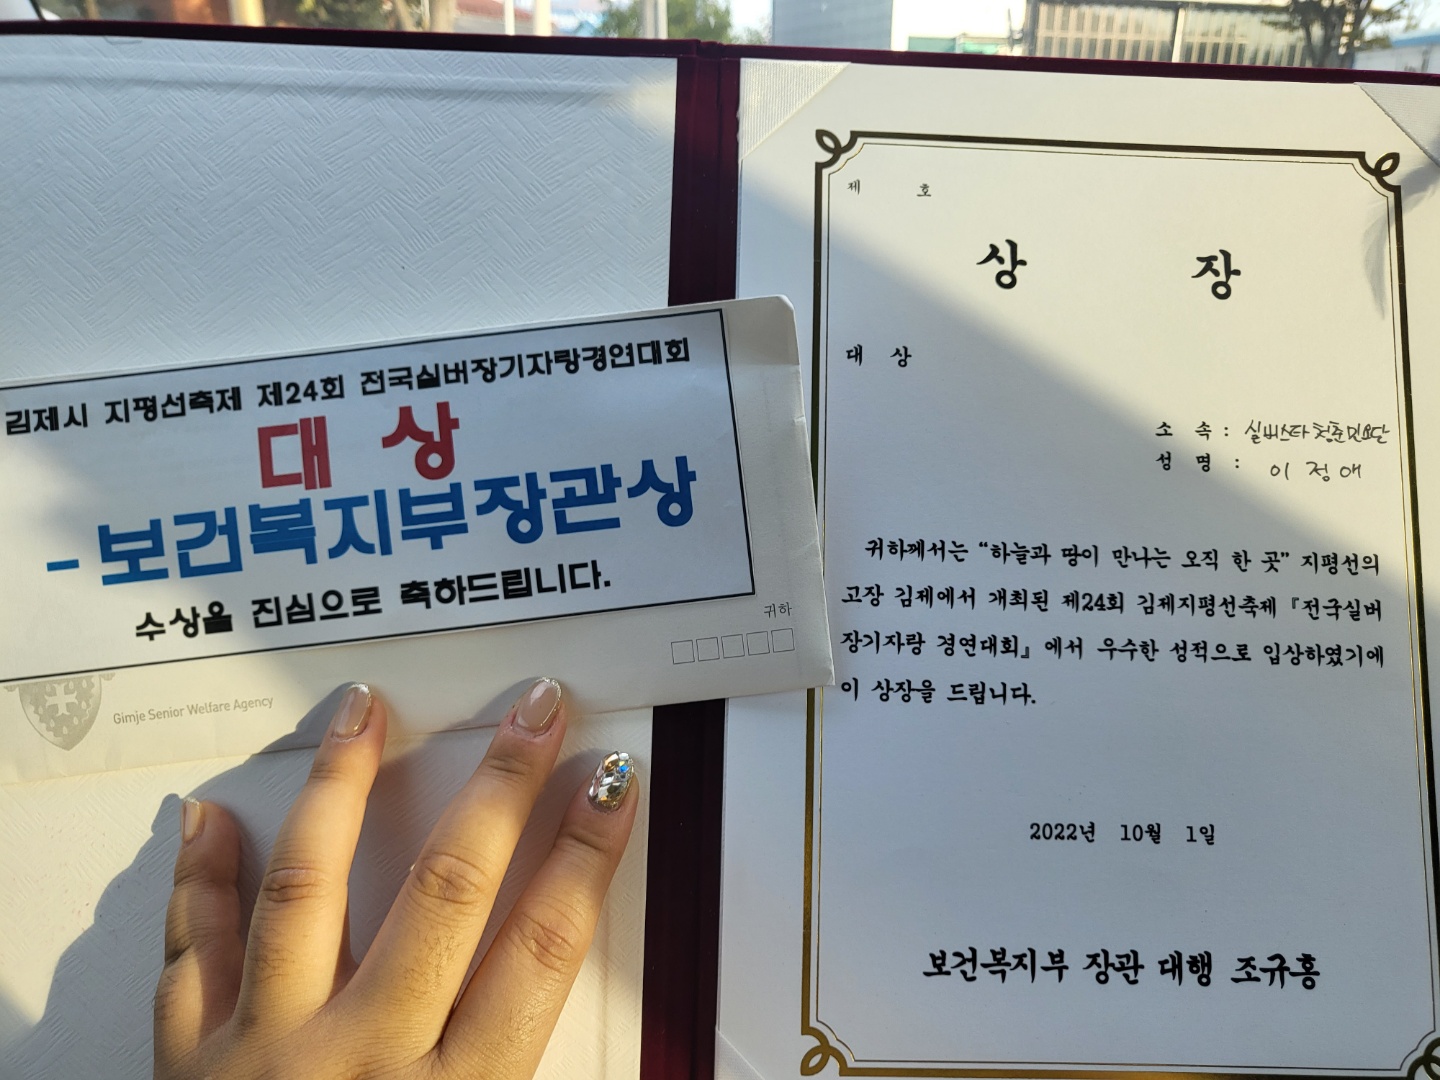 김제시 지평선축제 제24회 전국실버장기자랑경연대회
대 상
- 보건복지부장관상
수상을 진심으로 축하드립니다.
귀하
Gimje Senior Welfare Agency
제 호
상 장
대 상
소 속 : 실버스타 청춘민요단
성 명 : 이 정 애
귀하께서는 “하늘과 땅이 만나는 오직 한 곳” 지평선의
고장 김제에서 개최된 제24회 김제지평선축제 『전국실버
장기자랑 경연대회』에서 우수한 성적으로 입상하였기에
이 상장을 드립니다.
2022년 10월 1일
보건복지부 장관 대행 조규홍